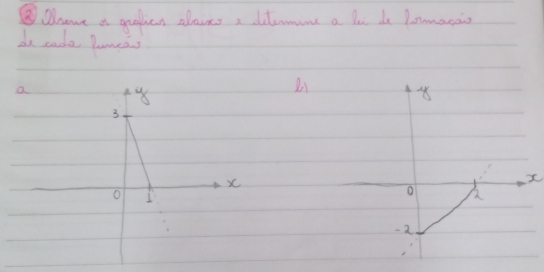 2 Observe os gráficos abaixo e determine a lei de formação
de cada função.
a b)
y y
3
0 1 x 0 2 x
-2